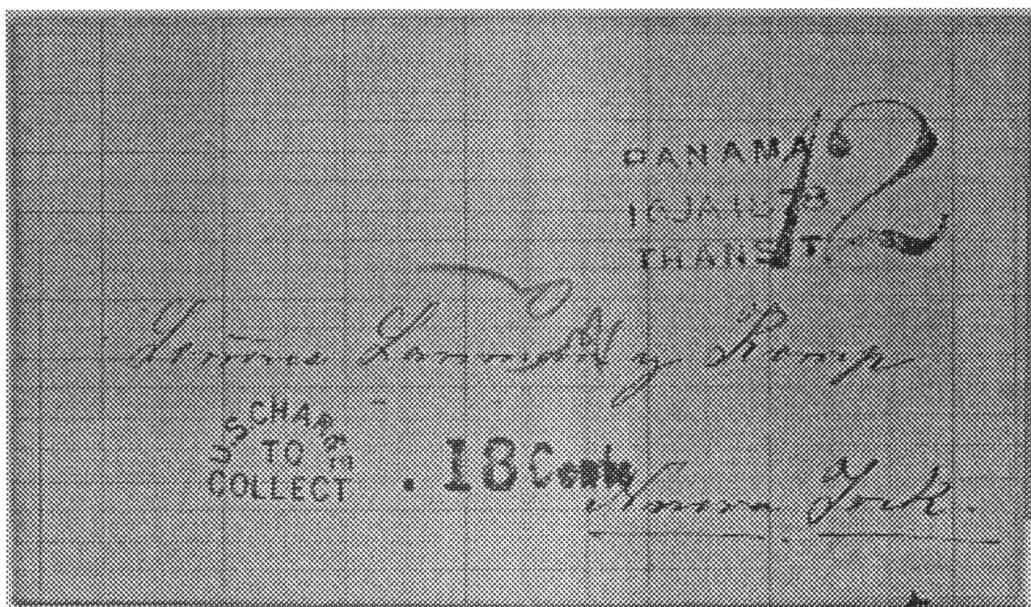 PANAMA
16JA
TRANSIT.
12
Señores Lanman y Kemp
US CHARGE
TO
COLLECT
. 18 Cents
Nueva York.